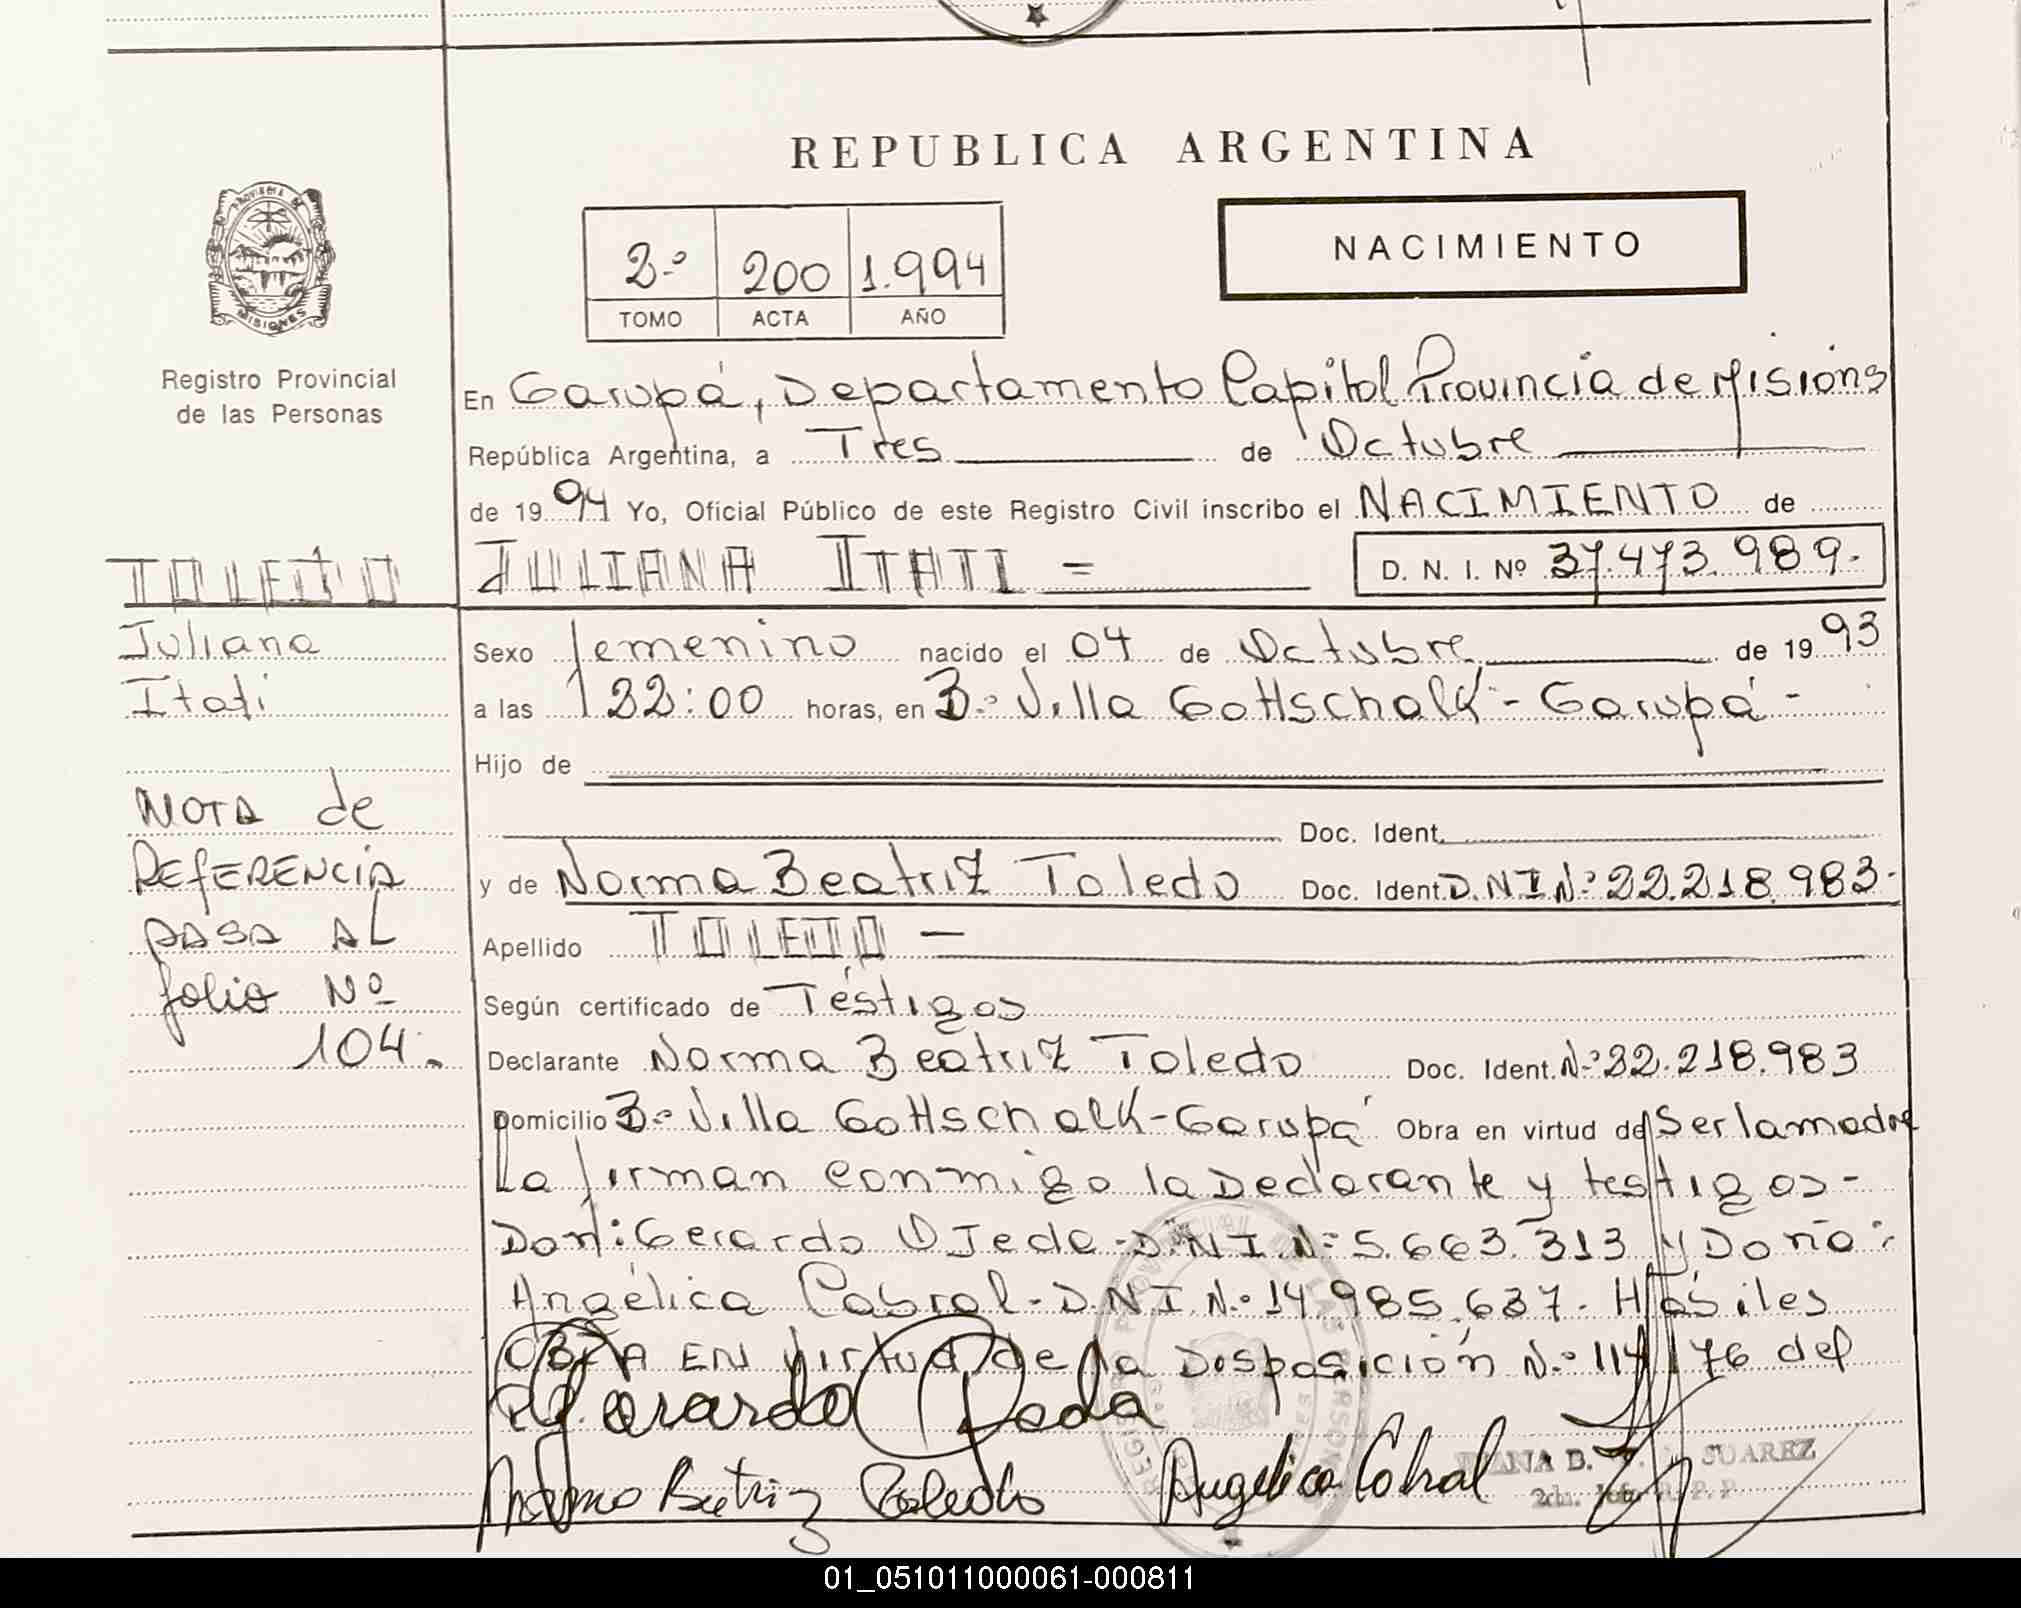 REPUBLICA ARGENTINA
NACIMIENTO
2º 200 1.994
TOMO ACTA AÑO
PROVINCIA DE
MISIONES
Registro Provincial
de las Personas
En Garupá, Departamento Capital Provincia de Misiones
República Argentina, a Tres de Octubre
de 1994 Yo, Oficial Público de este Registro Civil inscribo el NACIMIENTO de
TOLEDO
JULIANA ITATI =
D. N. I. Nº 37.473.989.-
Juliana
Itati
Sexo femenino nacido el 04 de Octubre de 1993
a las 22:00 horas, en Bº Villa Gottschalk - Garupá -
Hijo de
Doc. Ident.
NOTA de
REFERENCIA
PASA AL
folio Nº
104.
y de Norma Beatriz Toledo Doc. Ident. D.N.I.Nº 22.218.983.-
Apellido TOLEDO -
Según certificado de Testigos
Declarante Norma Beatriz Toledo Doc. Ident. Nº 22.218.983
Domicilio Bº Villa Gottschalk - Garupá Obra en virtud de Ser la madre
La firman conmigo la Declarante y testigos -
Don: Gerardo OJeda - D.N.I.Nº 5.663.313 y Doña:
Angélica Cabral - D.N.I.Nº 14.985.637. Hábiles
OBRA EN virtud de la Disposición Nº 114/76 del
Gerardo Ojeda
Norma Beatriz Toledo Angelica Cabral
SUAREZ
01_051011000061-000811